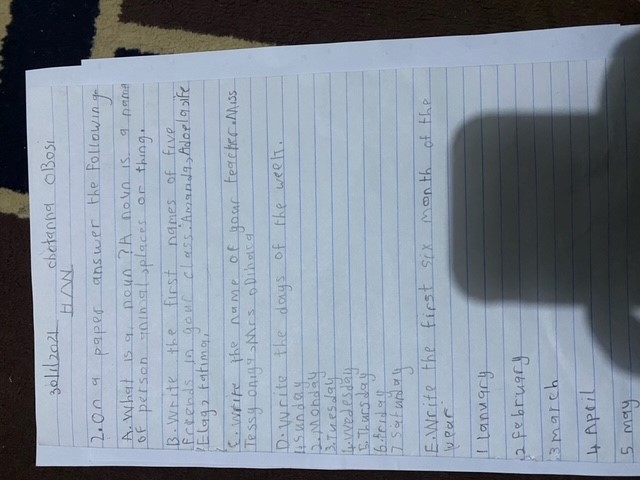 30/1/2021 chetanna OBosi
H/W
2. On a paper answer the following
A. What is a noun? A noun is a name
of person animal, places or thing.
B. Write the first names of five
freends in your class: Amanda,
Elags, fatima,
C. Write the name of your teacher. Miss
Tessy onyga, Mrs oDihaca
D. Write the days of the week.
1. Sunday
2. Monday
3. Tuesday
4. Wedesday
5. Thursday
6. friday
7. Saturday
E. Write the first six month of the
year.
1 January
2 february
3 march
4 April
5 may